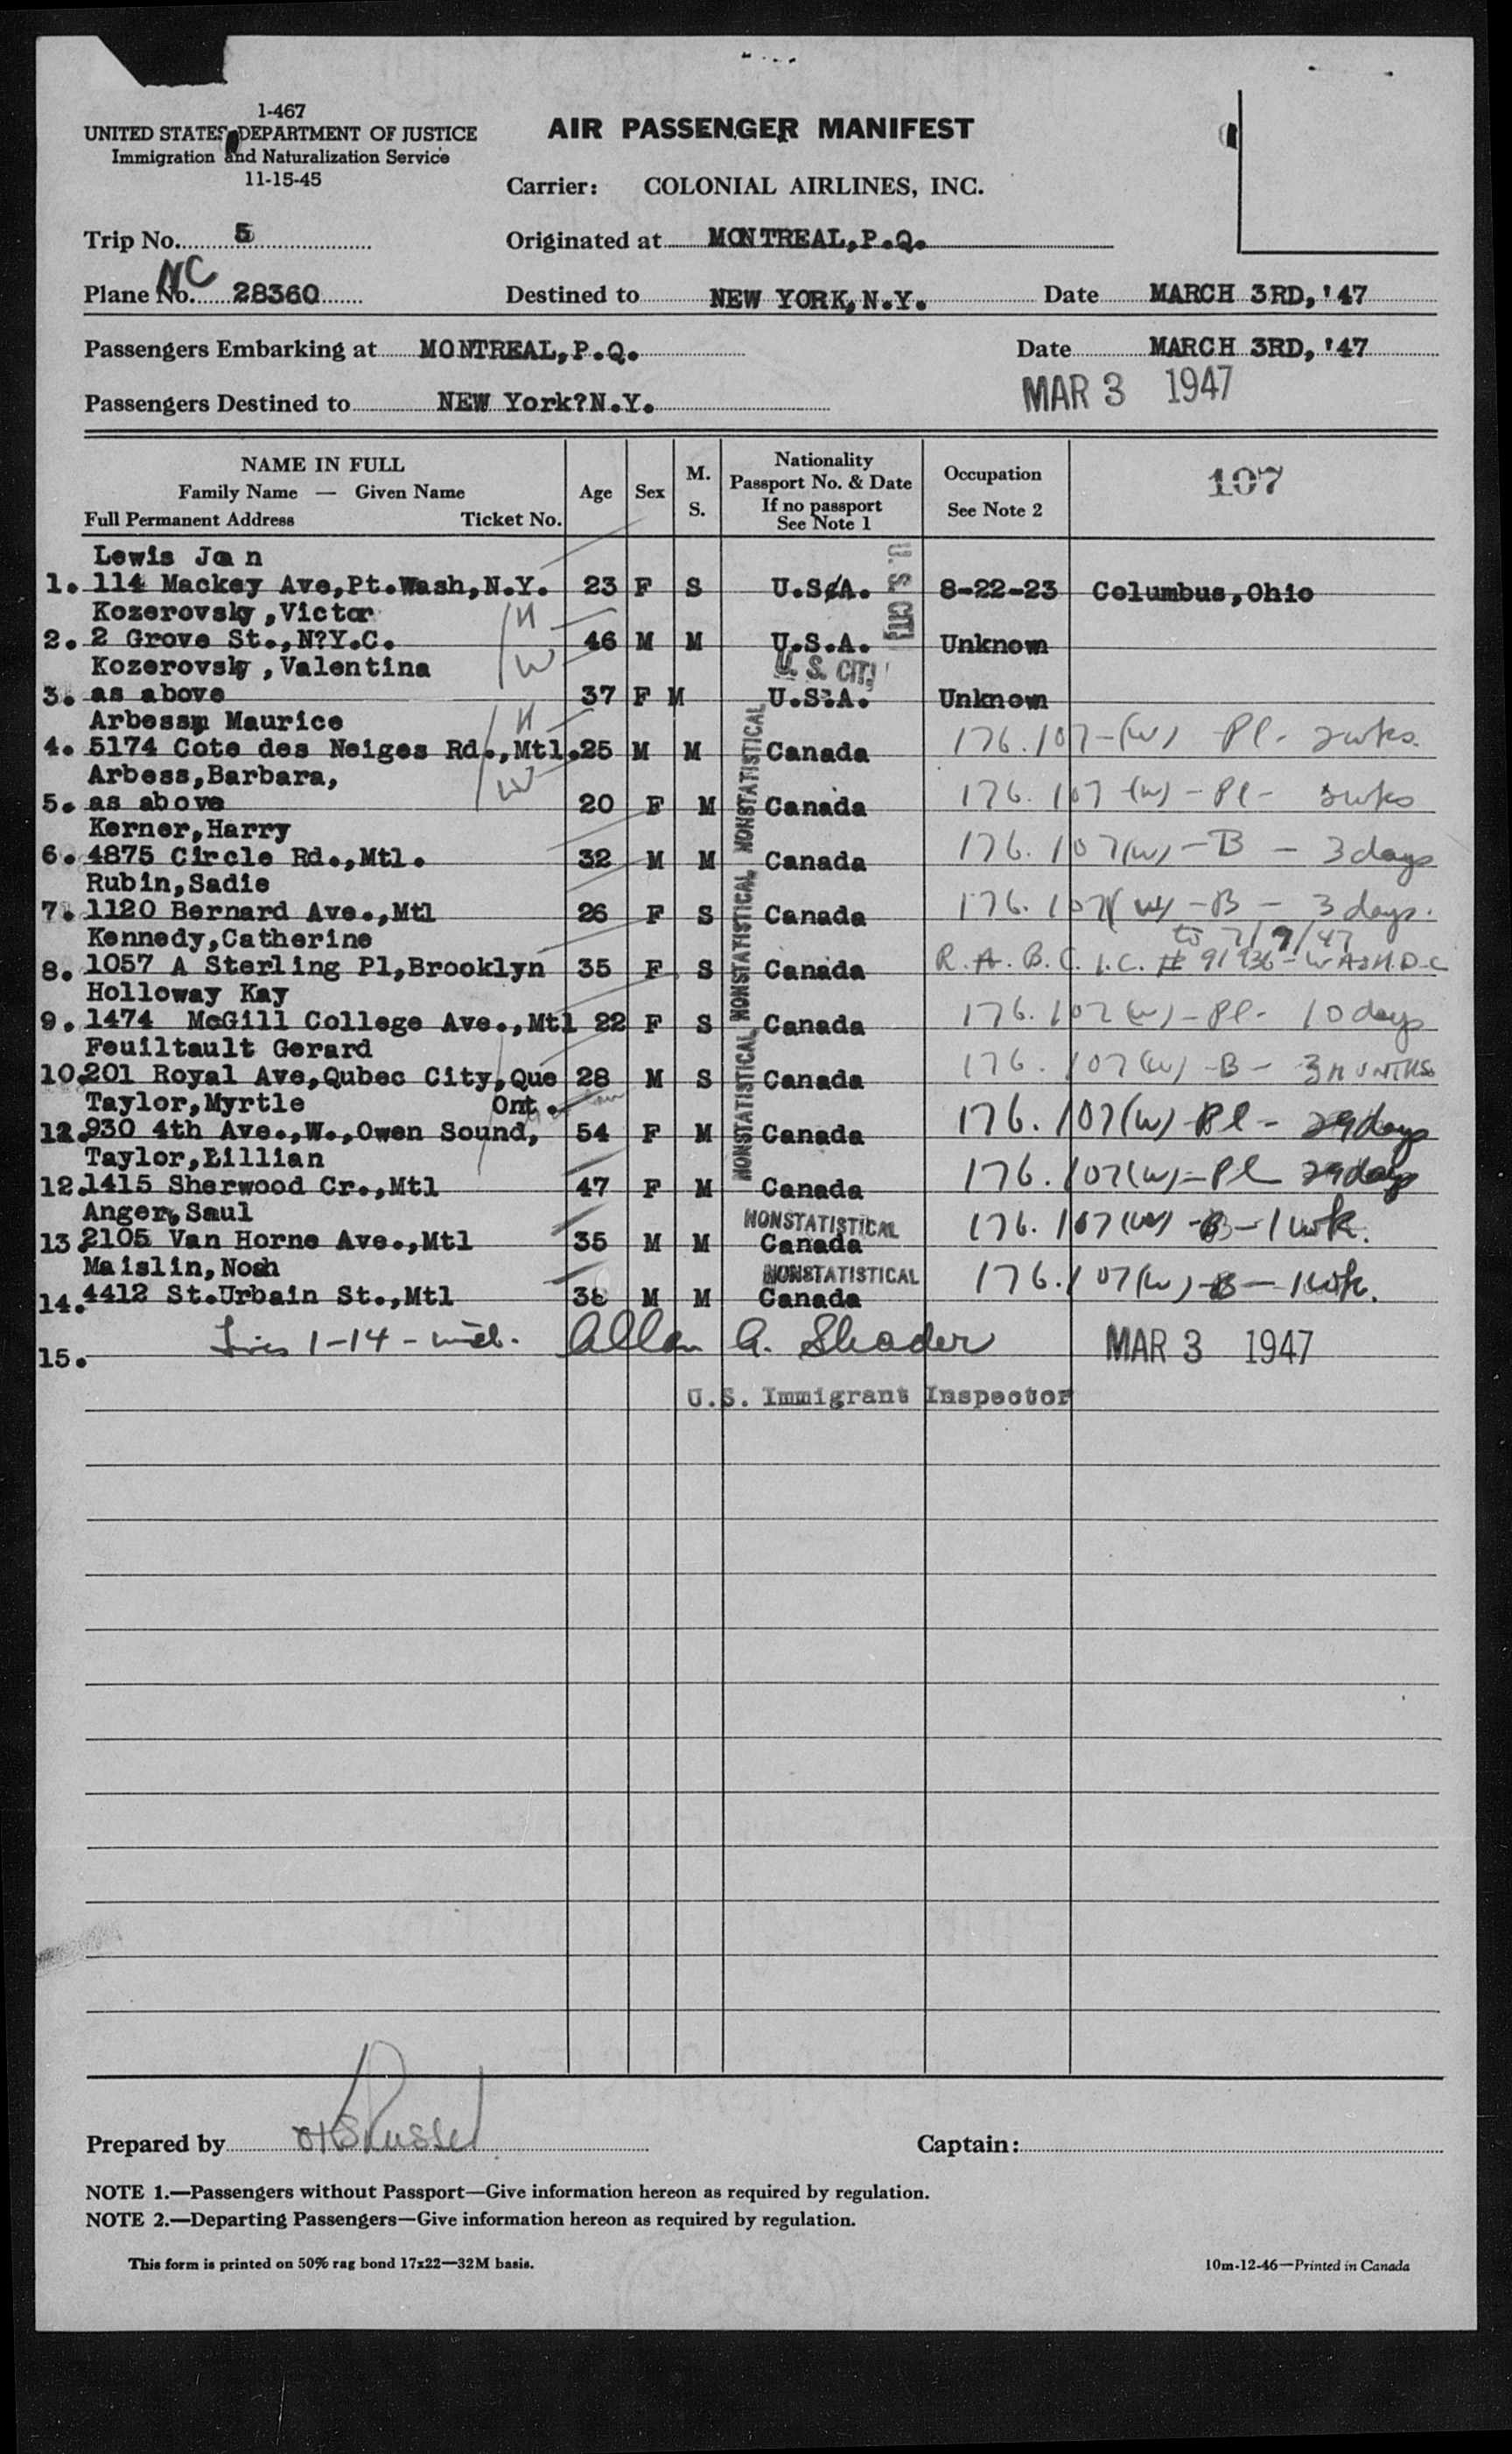 1-467
UNITED STATES DEPARTMENT OF JUSTICE
Immigration and Naturalization Service
11-15-45
AIR PASSENGER MANIFEST
Carrier: COLONIAL AIRLINES, INC.
Trip No. 5
Originated at MONTREAL,P.Q.
NC
Plane No. 28360
Destined to NEW YORK,N.Y.
Date MARCH 3RD,'47
Passengers Embarking at MONTREAL,P.Q.
Date MARCH 3RD,'47
Passengers Destined to NEW York?N.Y.
MAR 3 1947
NAME IN FULL
Family Name — Given Name
Full Permanent Address Ticket No.
Age
Sex
M.
S.
Nationality
Passport No. & Date
If no passport
See Note 1
Occupation
See Note 2
107
Lewis Jean
1. 114 Mackey Ave,Pt.Wash,N.Y. 23 F S U.S.A. 8-22-23 Columbus,Ohio
U. S. CIT.
Kozerovsky ,Victor H
2. 2 Grove St.,N?Y.C. 46 M M U.S.A. Unknown
Kozerovsky ,Valentina W U. S. CIT.
3. as above 37 F M U.S.A. Unknown
Arbess, Maurice H
4. 5174 Cote des Neiges Rd.,Mtl. 25 M M Canada 176.107-(W) Pl- 2 wks.
Arbess,Barbara, W
5. as above 20 F M Canada 176.107 (W) - Pl - 2 wks
Kerner,Harry
6. 4875 Circle Rd.,Mtl. 32 M M Canada 176.107(W) - B - 3 days
Rubin,Sadie
7. 1120 Bernard Ave.,Mtl 26 F S Canada 176.107(W) - B - 3 days.
Kennedy,Catherine to 7/9/47
8. 1057 A Sterling Pl,Brooklyn 35 F S Canada R.A.B.C. I.C. # 91936 - WASH.D.C
Holloway Kay
9. 1474 McGill College Ave.,Mtl 22 F S Canada 176.107(W) - Pl - 10 days
Feuiltault Gerard
10. 201 Royal Ave,Qubec City,Que 28 M S Canada 176.107(W) - B - 3 MONTHS
Taylor,Myrtle Ont.
12. 930 4th Ave.,W.,Owen Sound, 54 F M Canada 176.107(W) - Pl - 29 days
Taylor,Lillian
12. 1415 Sherwood Cr.,Mtl 47 F M Canada 176.107(W) - Pl 29 days
NONSTATISTICAL NONSTATISTICAL NONSTATISTICAL NONSTATISTICAL
Anger, Saul NONSTATISTICAL
13. 2105 Van Horne Ave.,Mtl 35 M M Canada 176.107(W) - B - 1 wk.
Maislin,Noah NONSTATISTICAL
14. 4412 St.Urbain St.,Mtl 38 M M Canada 176.107(W) - B - 1 wk.
15. Lines 1-14 - incl. Allan A. Shader MAR 3 1947
U.S. Immigrant Inspector
Prepared by Russel
Captain:
NOTE 1.—Passengers without Passport—Give information hereon as required by regulation.
NOTE 2.—Departing Passengers—Give information hereon as required by regulation.
This form is printed on 50% rag bond 17x22—32M basis.
10m-12-46—Printed in Canada